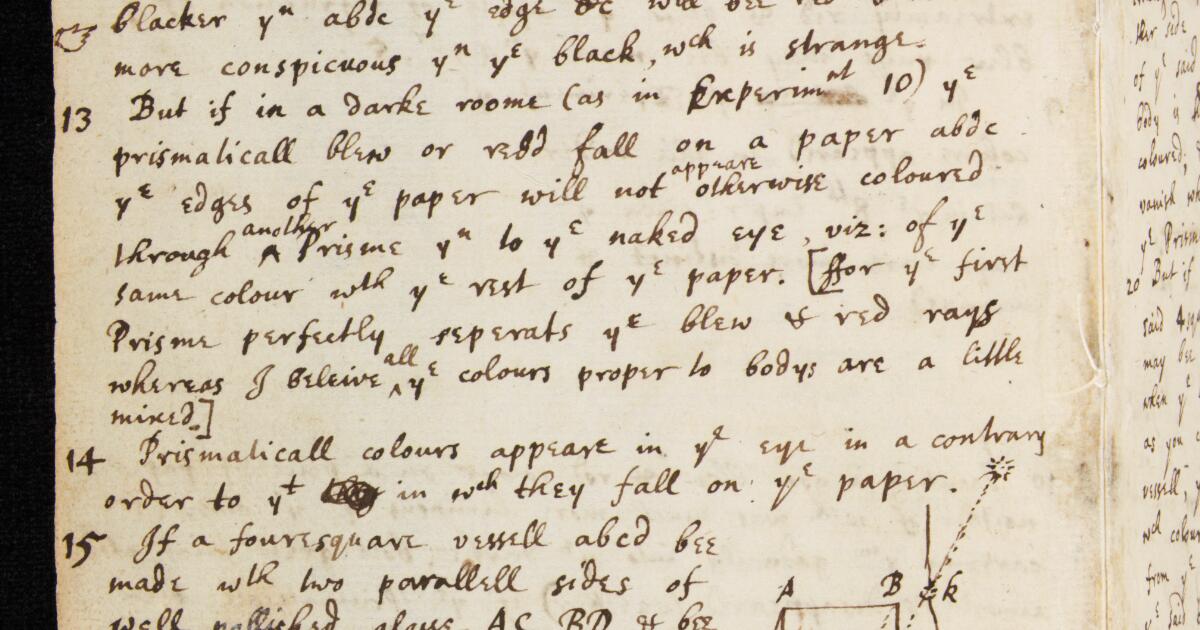 blacker yn abdc ye edge &c will bee red
more conspicuous yn ye black, wch is strange.
13 But if in a darke roome (as in Experimnt 10) ye
prismaticall blew or redd fall on a paper abdc
ye edges of ye paper will not appeare otherwise coloured
through another Prisme yn to ye naked eye, viz: of ye
same colour wth ye rest of ye paper. [ffor ye first
Prisme perfectly seperats ye blew & red rays
whereas I beleive all ye colours proper to bodys are a little
mixed]
14 Prismaticall colours appeare in ye eye in a contrary
order to yt in wch they fall on ye paper.
15 If a fouresquare vessell abcd bee
made wth two parallell sides of
well pollished glass AC, BD & bee
A B k
ther side
of ye said
body is
coloured,
vanish
ye Prism
20 But if
said
may bee
when ye
as you
vessell,
wch colour
from ye
ye said